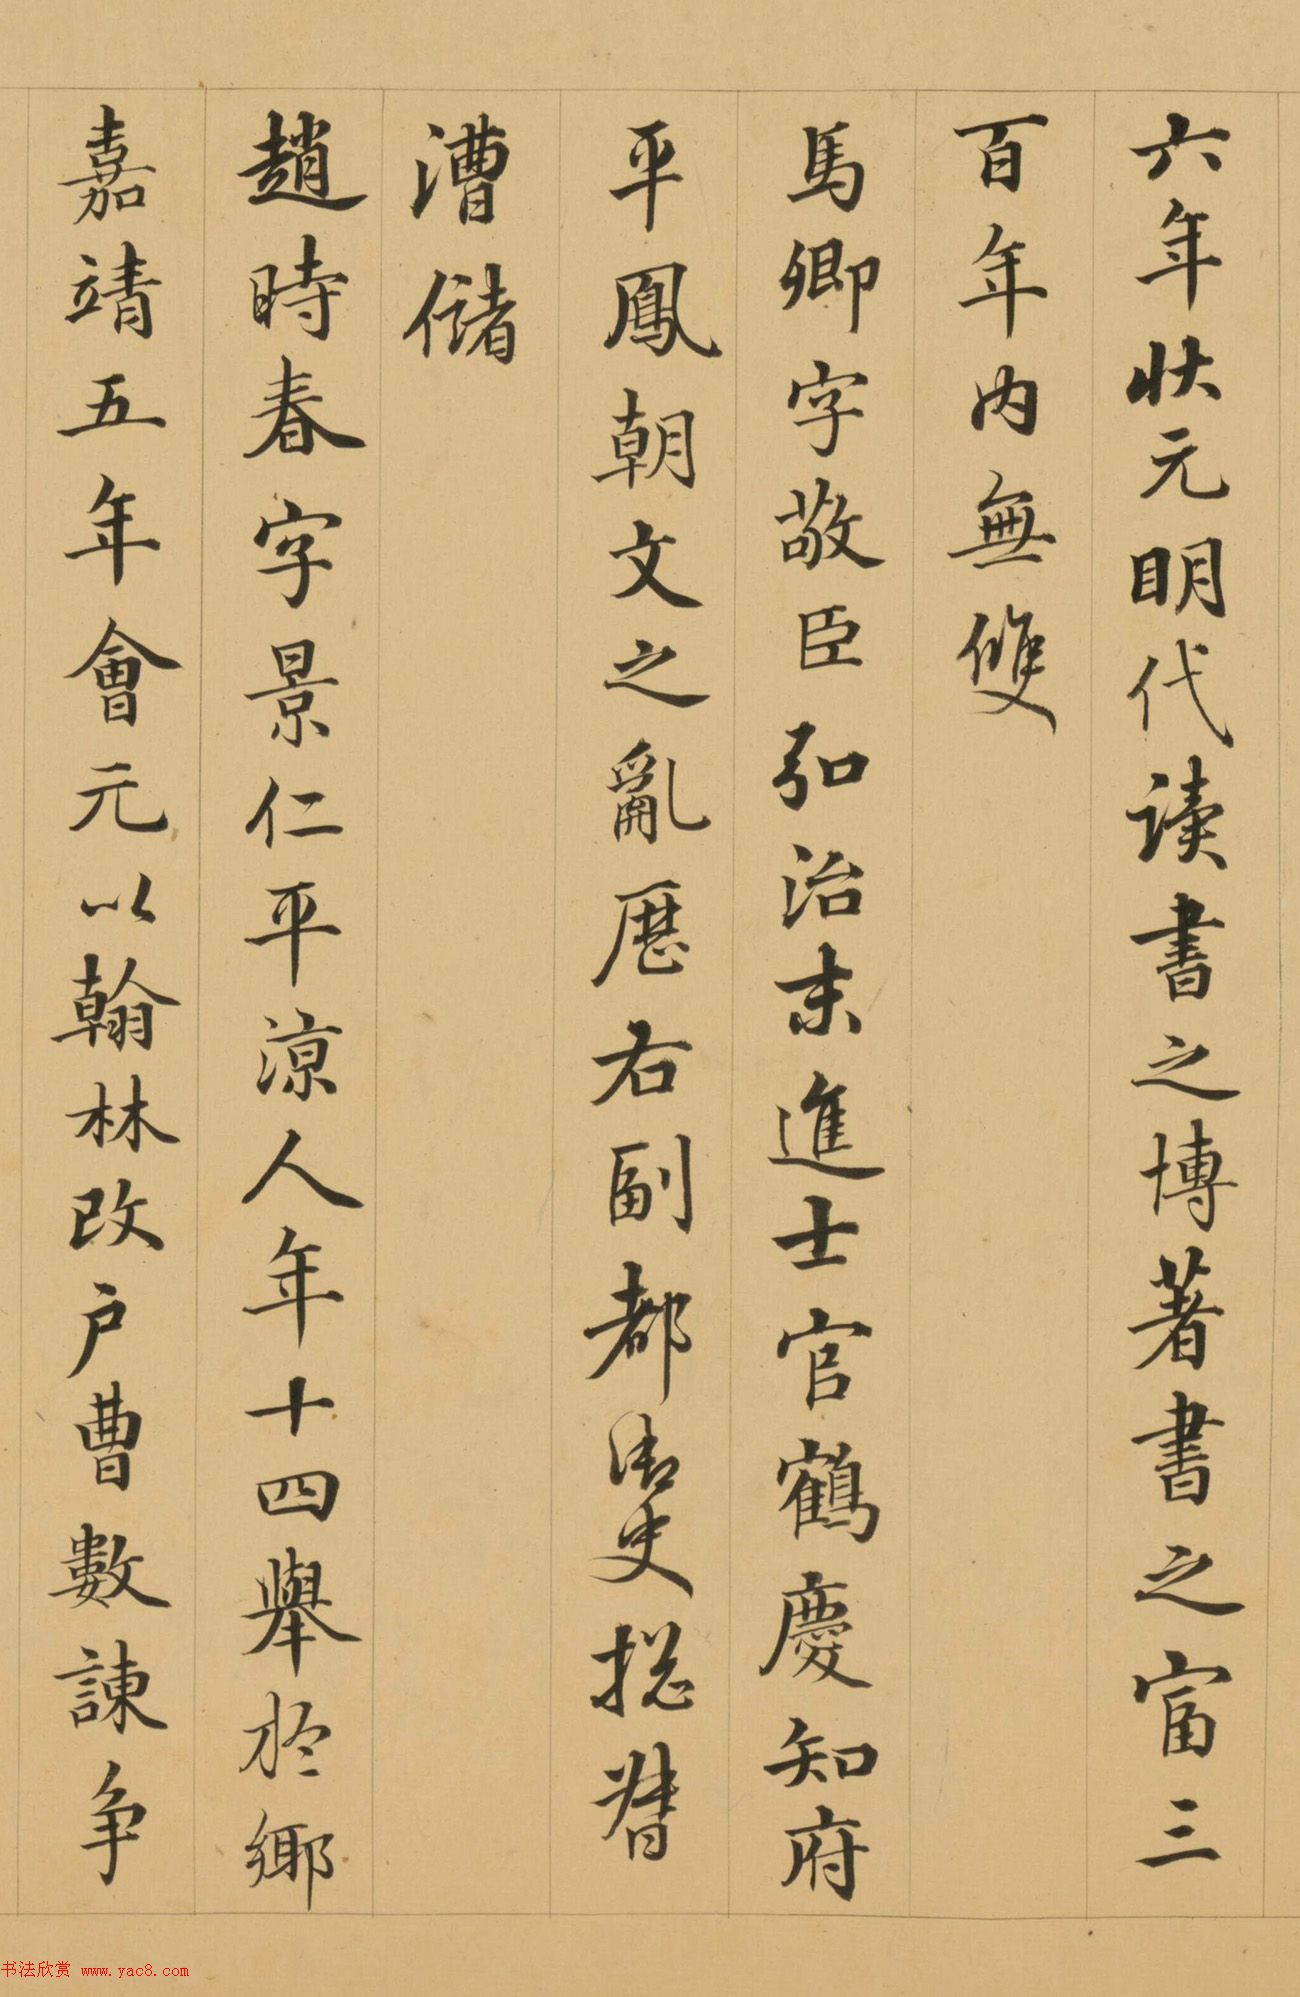 六年状元明代读書之博著書之富三
百年内無雙
馬卿字敬臣弘治末進士官鶴慶知府
平鳳朝文之亂歷右副都御史揔督
漕儲
趙時春字景仁平涼人年十四舉於鄉
嘉靖五年會元以翰林改户曹數諫争
书法欣赏 www.yac8.com